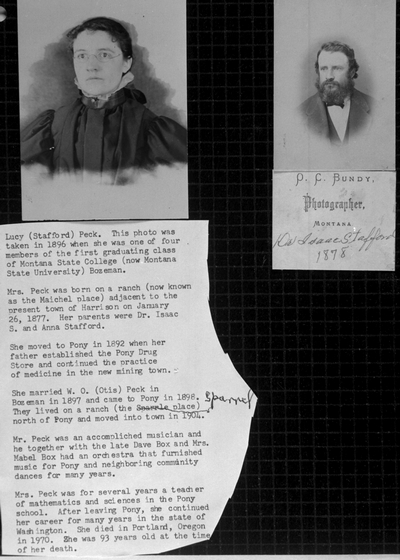 O. C. BUNDY,
Photographer,
MONTANA.
Dr Isaac Stafford
1878
Lucy (Stafford) Peck. This photo was
taken in 1896 when she was one of four
members of the first graduating class
of Montana State College (now Montana
State University) Bozeman.
Mrs. Peck was born on a ranch (now known
as the Maichel place) adjacent to the
present town of Harrison on January
26, 1877. Her parents were Dr. Isaac
S. and Anna Stafford.
She moved to Pony in 1892 when her
father established the Pony Drug
Store and continued the practice
of medicine in the new mining town.
She married W. O. (Otis) Peck in
Bozeman in 1897 and came to Pony in 1898. Sparrel
They lived on a ranch (the Sparrle place)
north of Pony and moved into town in 1904.
Mr. Peck was an accomplished musician and
he together with the late Dave Box and Mrs.
Mabel Box had an orchestra that furnished
music for Pony and neighboring community
dances for many years.
Mrs. Peck was for several years a teacher
of mathematics and sciences in the Pony
school. After leaving Pony, she continued
her career for many years in the state of
Washington. She died in Portland, Oregon
in 1970. She was 93 years old at the time
of her death.